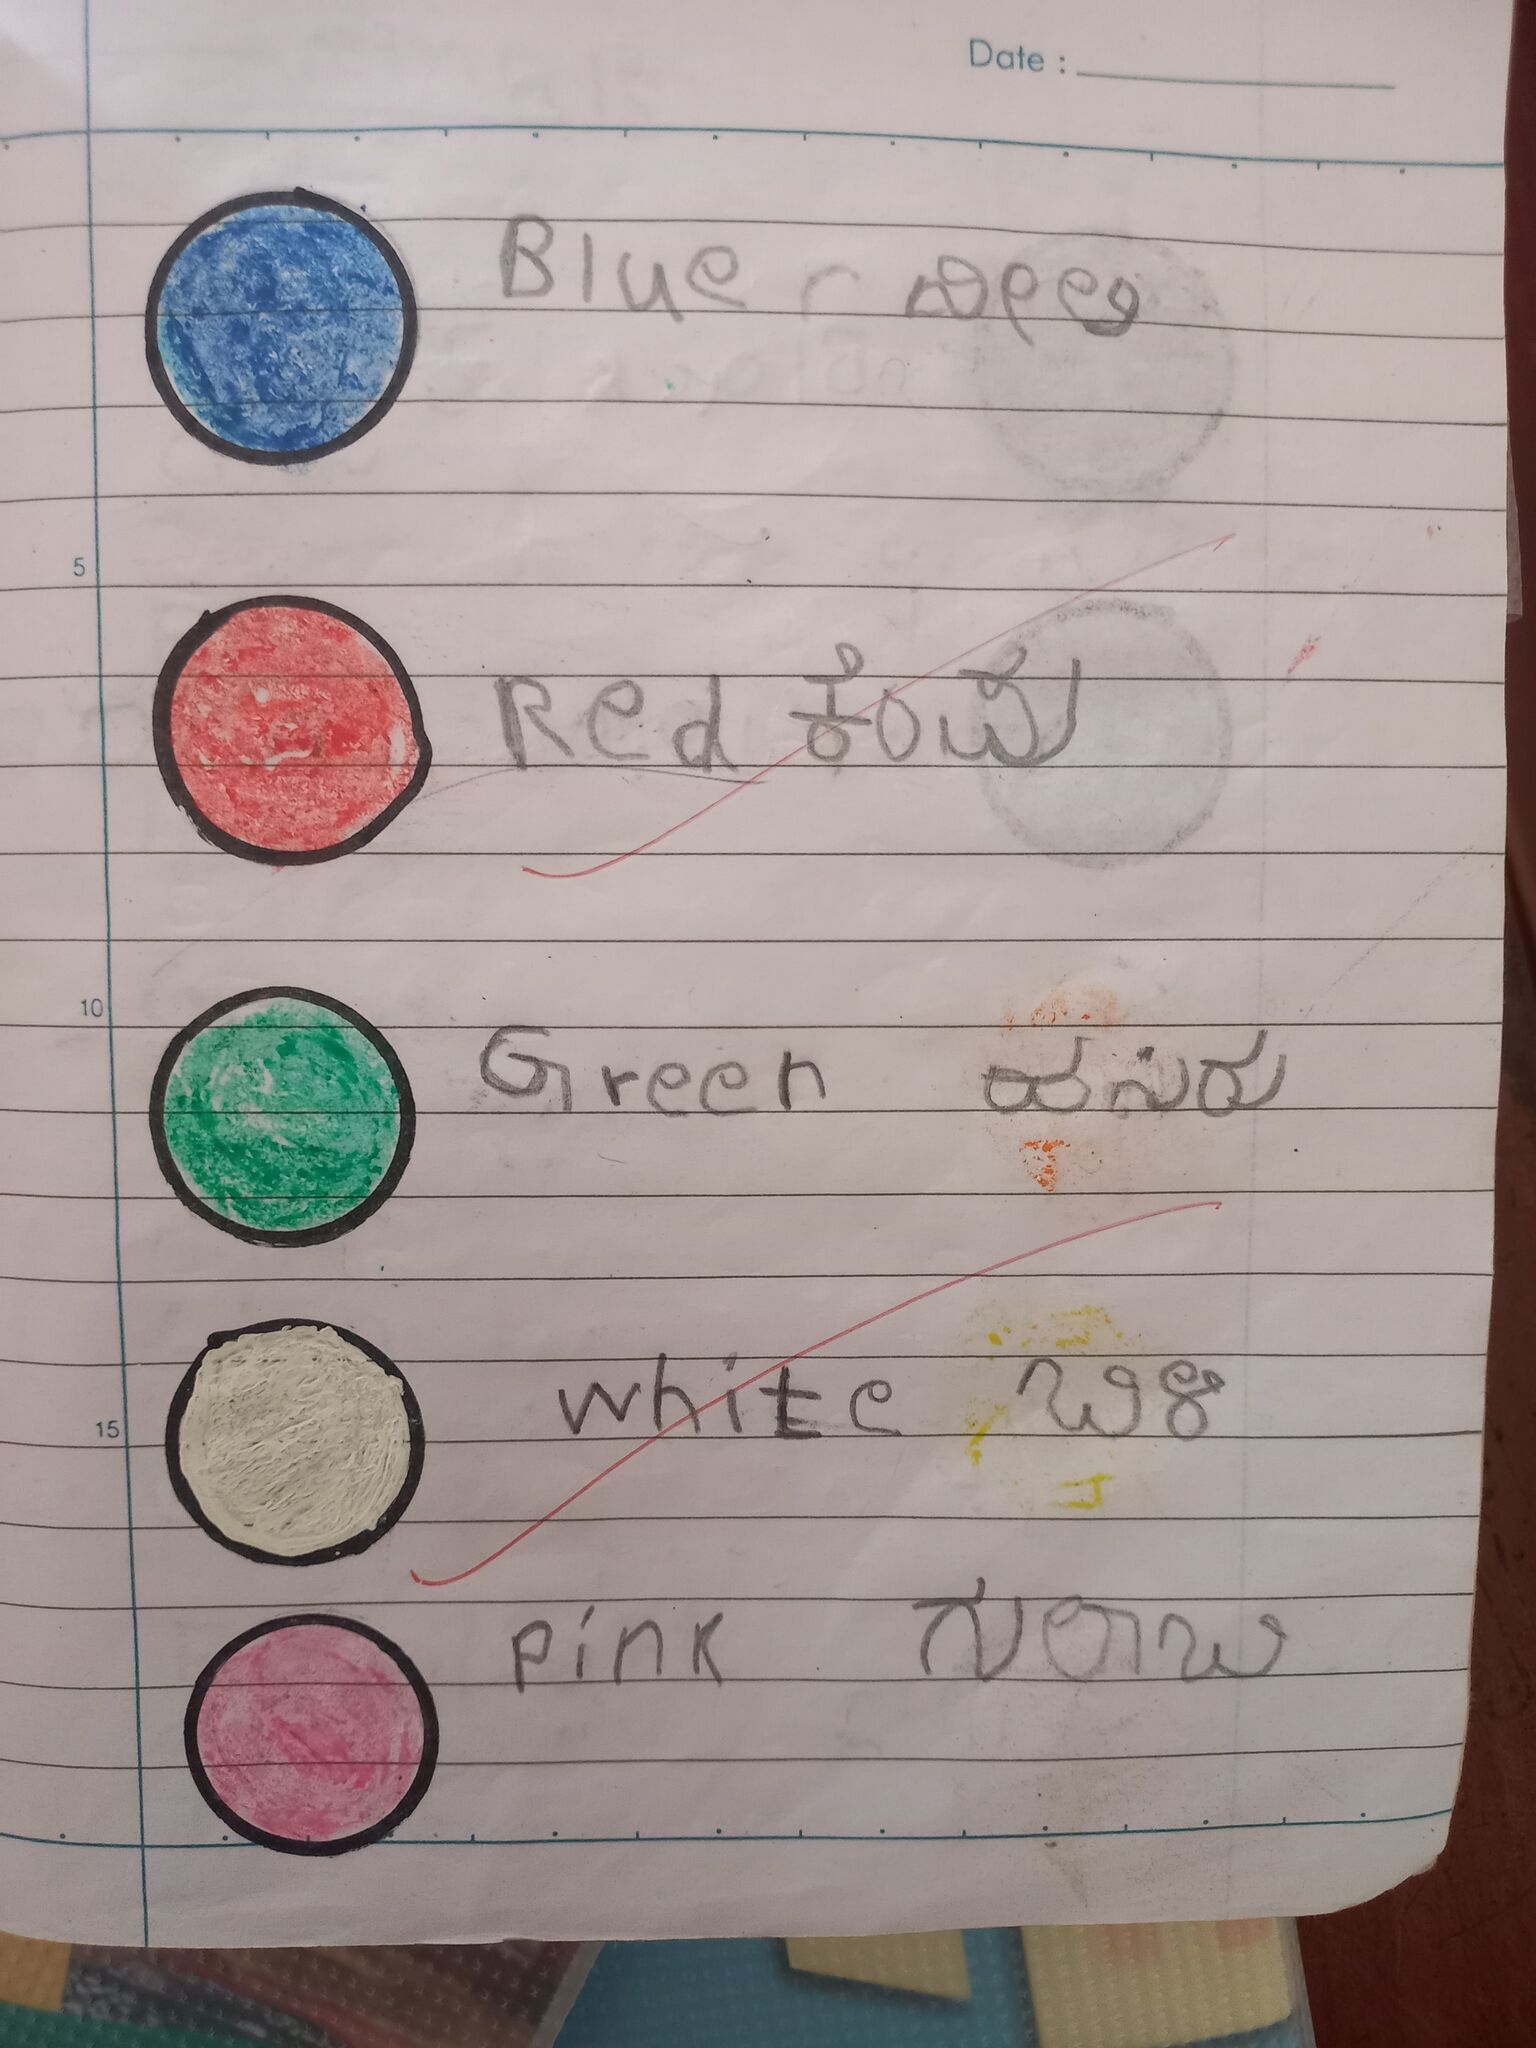 Date :
Blue - ನೀಲಿ
5
Red ಕೆಂಪು
10
Green ಹಸಿರು
white ಬಿಳಿ
15
pink ಗುಲಾಬಿ